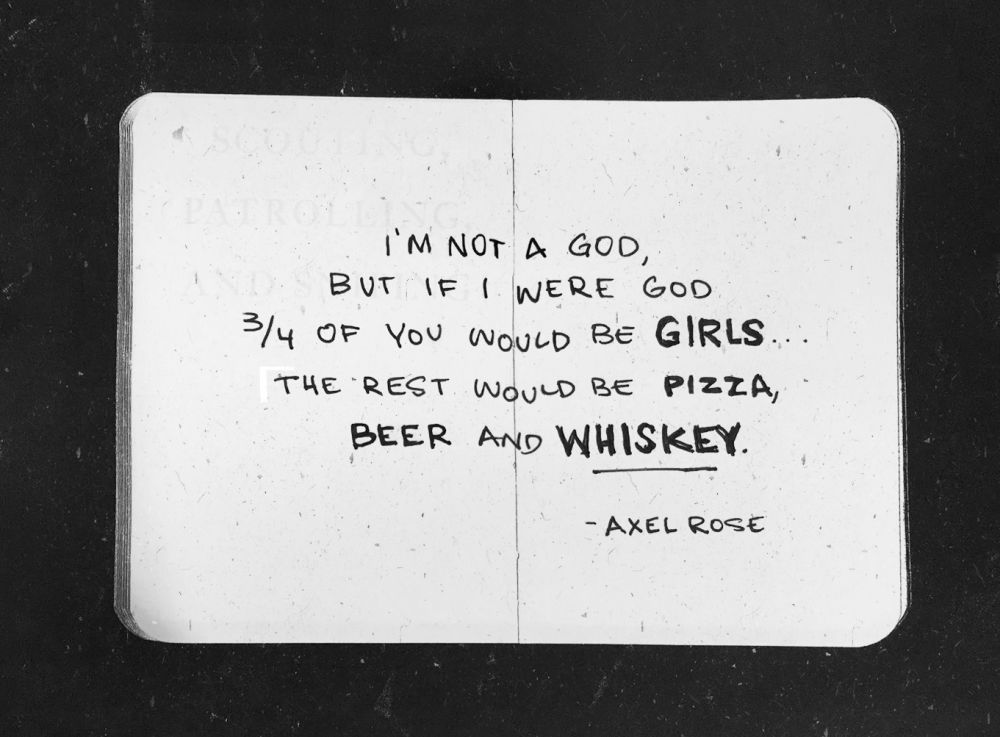 SCOUTING,
PATROLLING,
AND
I'M NOT A GOD,
BUT IF I WERE GOD
3/4 OF YOU WOULD BE GIRLS...
THE REST WOULD BE PIZZA,
BEER AND WHISKEY.
-AXEL ROSE